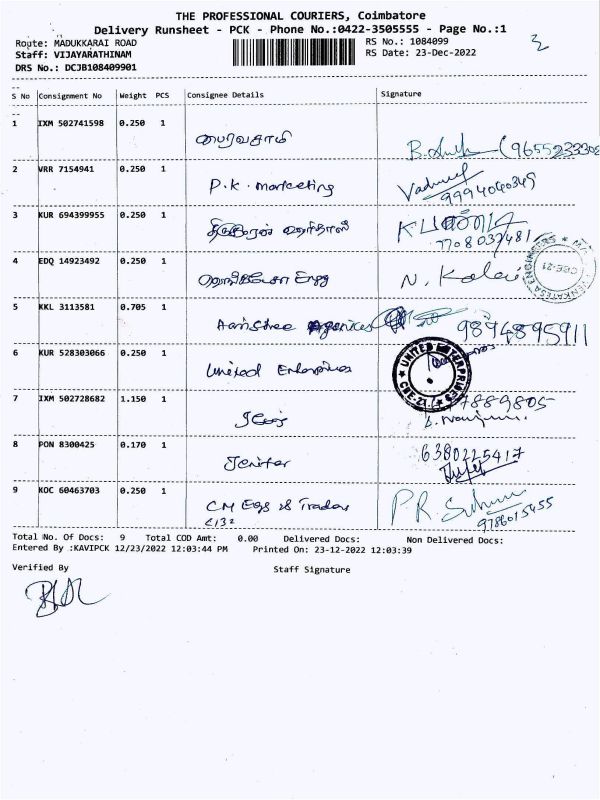 THE PROFESSIONAL COURIERS, Coimbatore
Delivery Runsheet - PCK - Phone No.:0422-3505555 - Page No.:1
Route: MADUKKARAI ROAD RS No.: 1084099
Staff: VIJAYARATHINAM RS Date: 23-Dec-2022
DRS No.: DCJB108409901
S No Consignment No Weight PCS Consignee Details Signature
1 IXM 502741598 0.250 1
2 VRR 7154941 0.250 1 P.K. marketing
9994060349
3 KUR 694399955 0.250 1
7708037481
4 EDQ 14923492 0.250 1 N. Kalai
CBE-21
5 KKL 3113581 0.705 1 Agencies 9894895911
6 KUR 528303066 0.250 1 United Enterprises
UNITED ENTERPRISES CBE-21
7 IXM 502728682 1.150 1
8 PON 8300425 0.170 1 Jenifer 6380225417
9 KOC 60463703 0.250 1 CM Egs & Traders P.R.
9786015455
Total No. Of Docs: 9 Total COD Amt: 0.00 Delivered Docs: Non Delivered Docs:
Entered By :KAVIPCK 12/23/2022 12:03:44 PM Printed On: 23-12-2022 12:03:39
Verified By Staff Signature